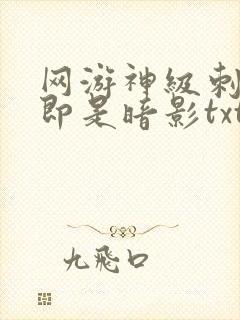 网游神级刺
即是暗影txt
九飛口